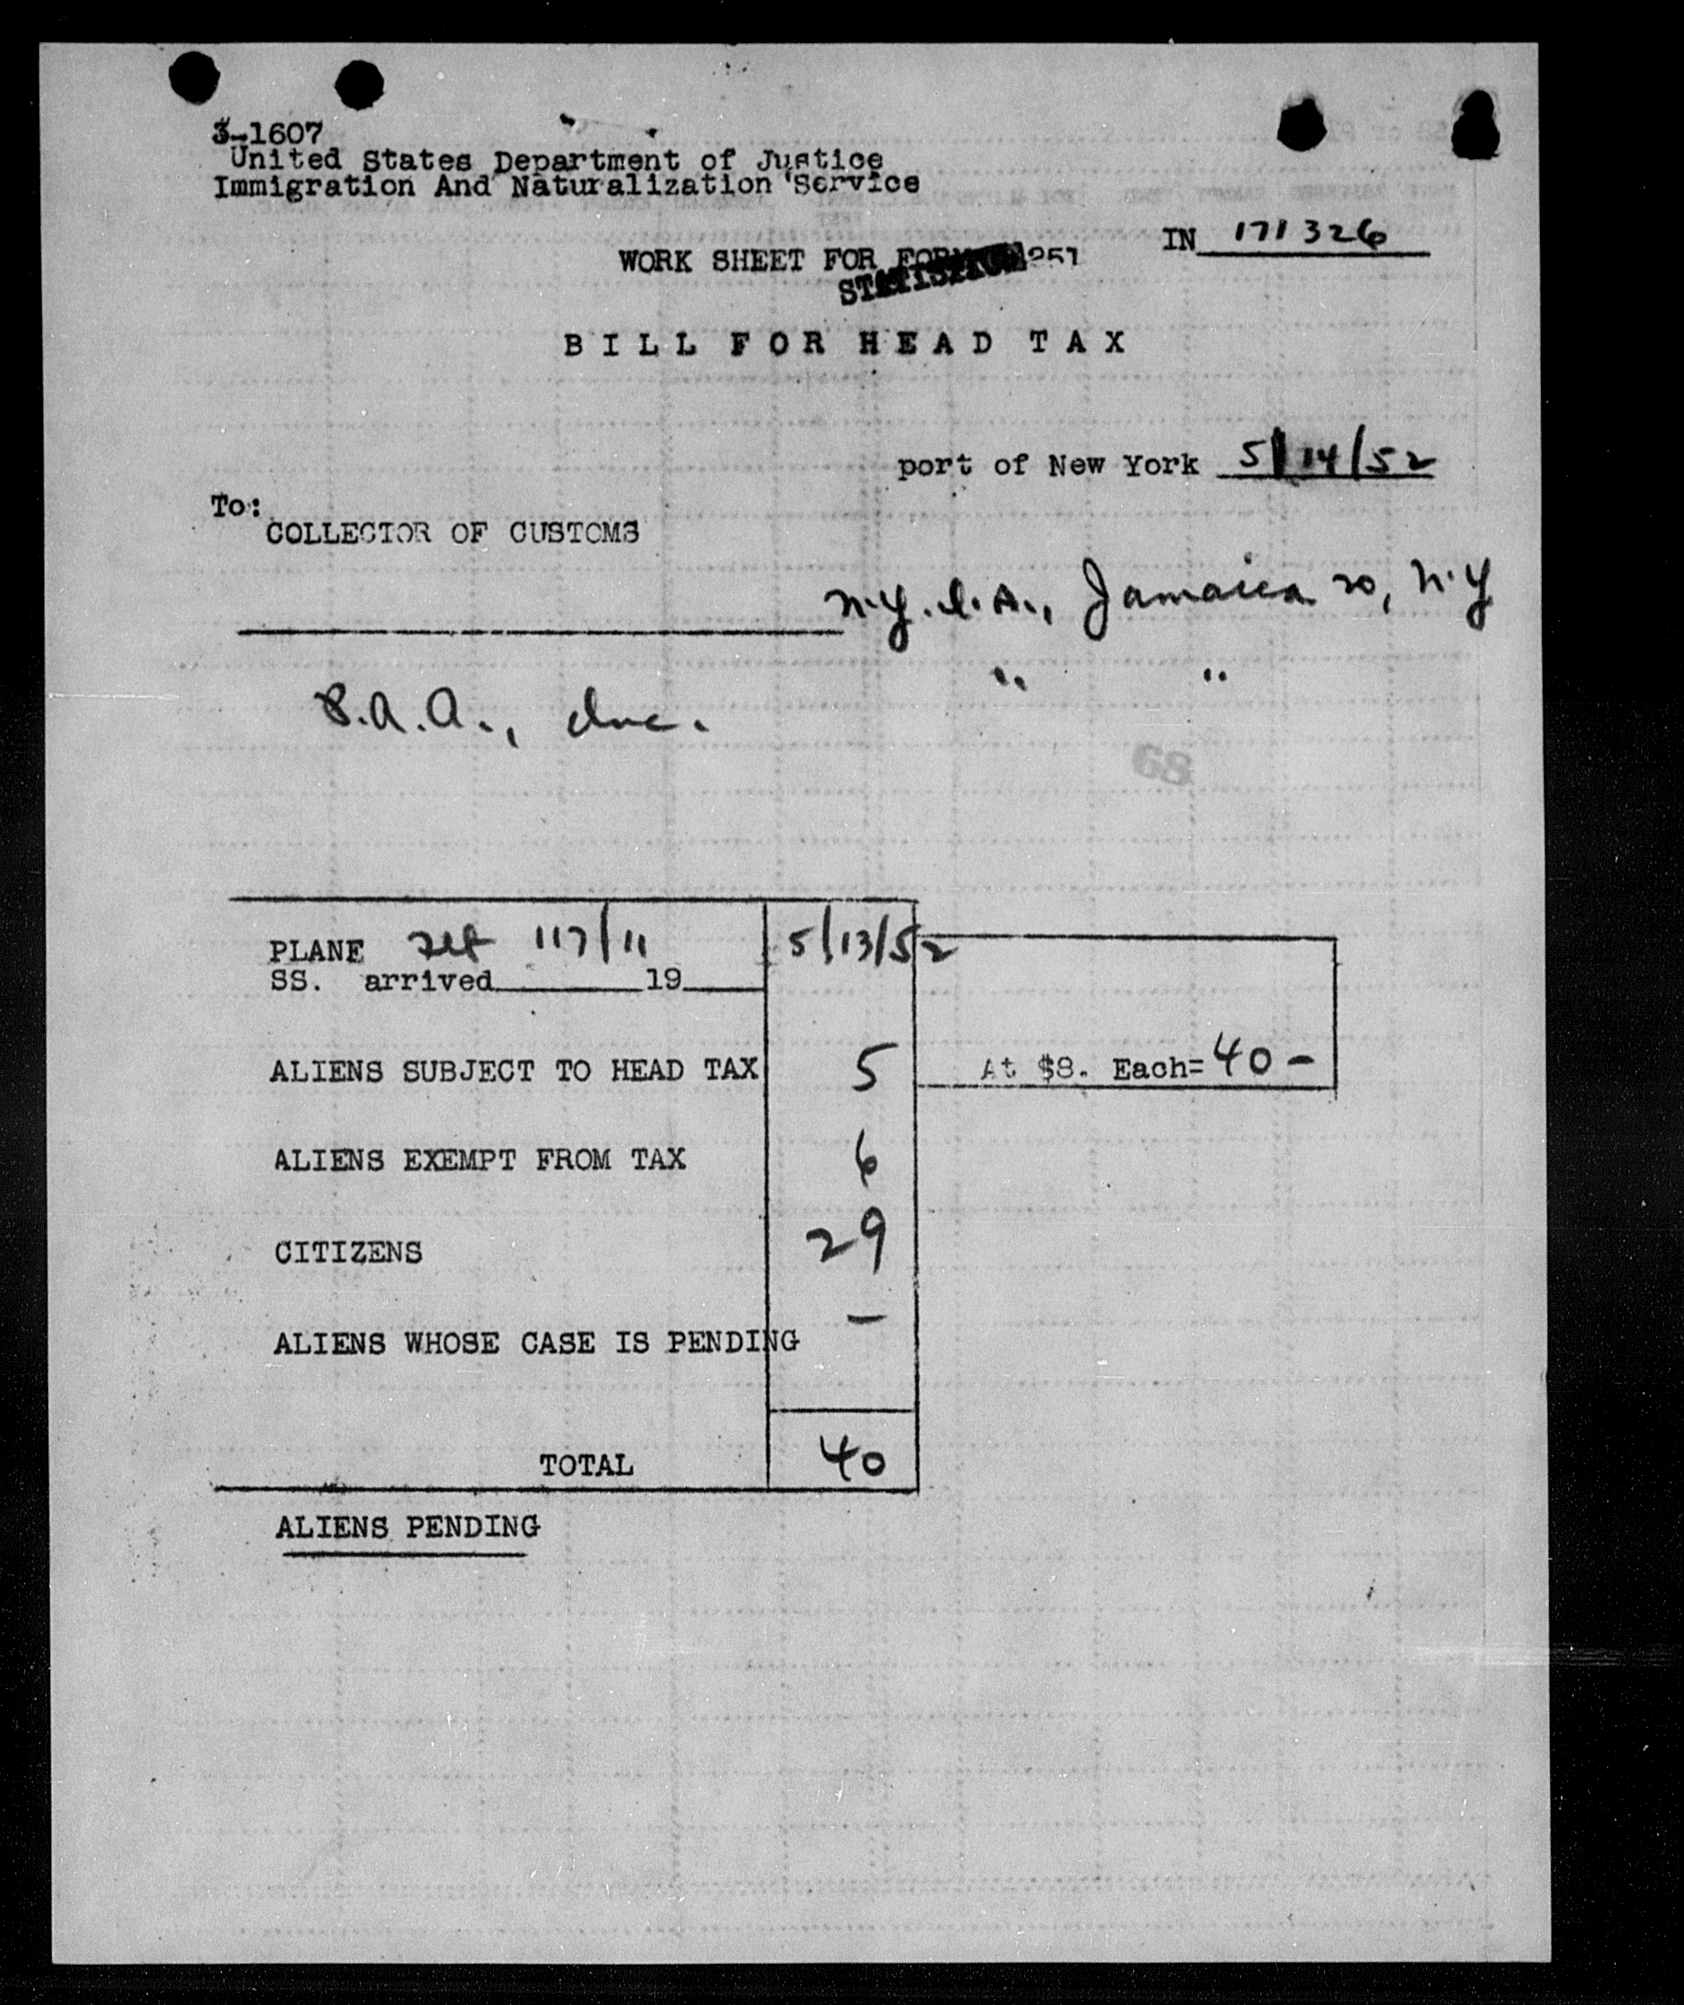 3-1607
United States Department of Justice
Immigration And Naturalization Service
IN 171326
WORK SHEET FOR FORM 251
BILL FOR HEAD TAX
port of New York 5/14/52
To:
COLLECTOR OF CUSTOMS
N.Y.I.A., Jamaica 20, N.Y
" "
P.A.A., Inc.
68
PLANE 117/11 5/13/52
SS. arrived 19
ALIENS SUBJECT TO HEAD TAX 5 At $8. Each= 40 -
ALIENS EXEMPT FROM TAX 6
CITIZENS 29
ALIENS WHOSE CASE IS PENDING -
TOTAL 40
ALIENS PENDING